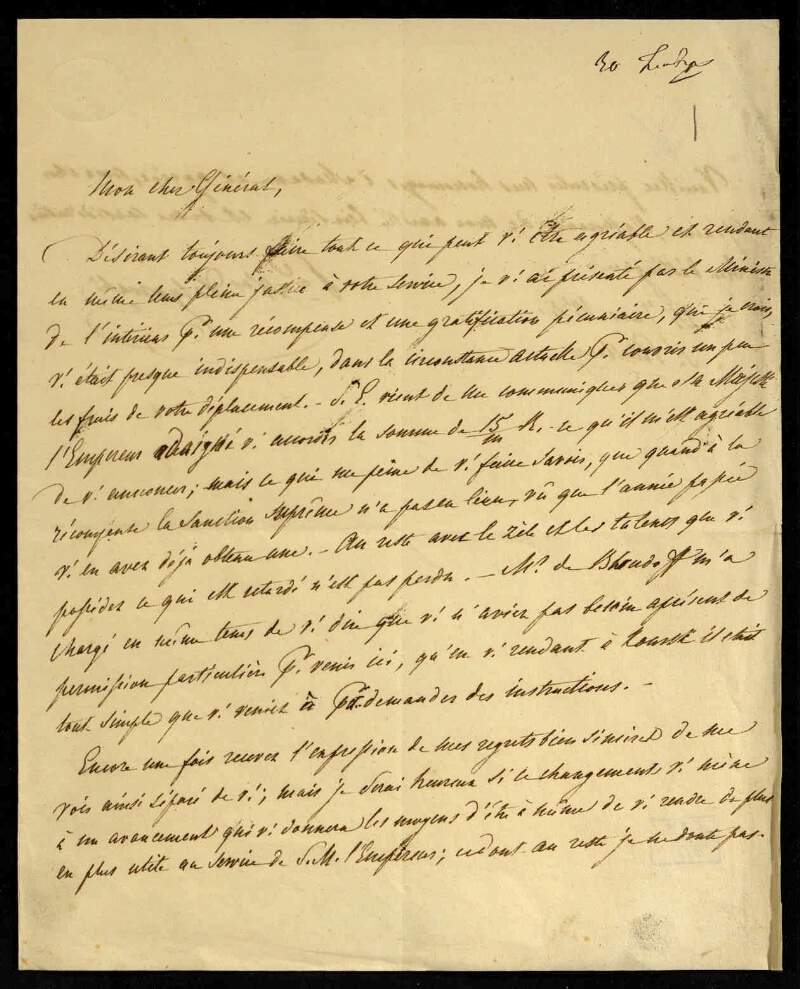 30
Mon cher Général,
Désirant toujours faire tout ce qui peut v: être agréable et rendant
en même tems pleine justice à votre service, je v: ai présenté par le Ministre
de l'interieur p.r une récompense et une gratification pécuniaire, qui je crois,
v: était presque indispensable, dans la circonstance actuelle p.r couvrir un peu
les frais de votre déplacement. – S. E. vient de me communiquer que sa Majesté
l'Empereur a daigné v: accorder la somme de 15/m R. ce qu'il m'est agréable
de v: annoncer; mais ce qui me peine de v: faire savoir, que quand à la
récompense la Sanction suprême n'a pas eu lieu, vû que l'année passée
v: en avez déjà obtenu une. – Au reste avec le zèle et les talents que v:
possédez ce qui est retardé n'est pas perdu. – Mr. de Bloudoff m'a
chargé en même tems de v: dire que v: n'aviez pas besoin aprésent de
permission particulière p.r venir ici, qu'en v: rendant à Koursk il était
tout simple que v: veniez p.r demander des instructions. –
Encore une fois recevez l'expression de mes regrets bien sincères de me
voir ainsi séparé de v:; mais je serai heureux si ce changement v: mène
à un avancement qui v: donnera les moyens d'être à même de v: rendre de plus
en plus utile au service de S. M. l'Empereur; ce dont au reste je ne doute pas.